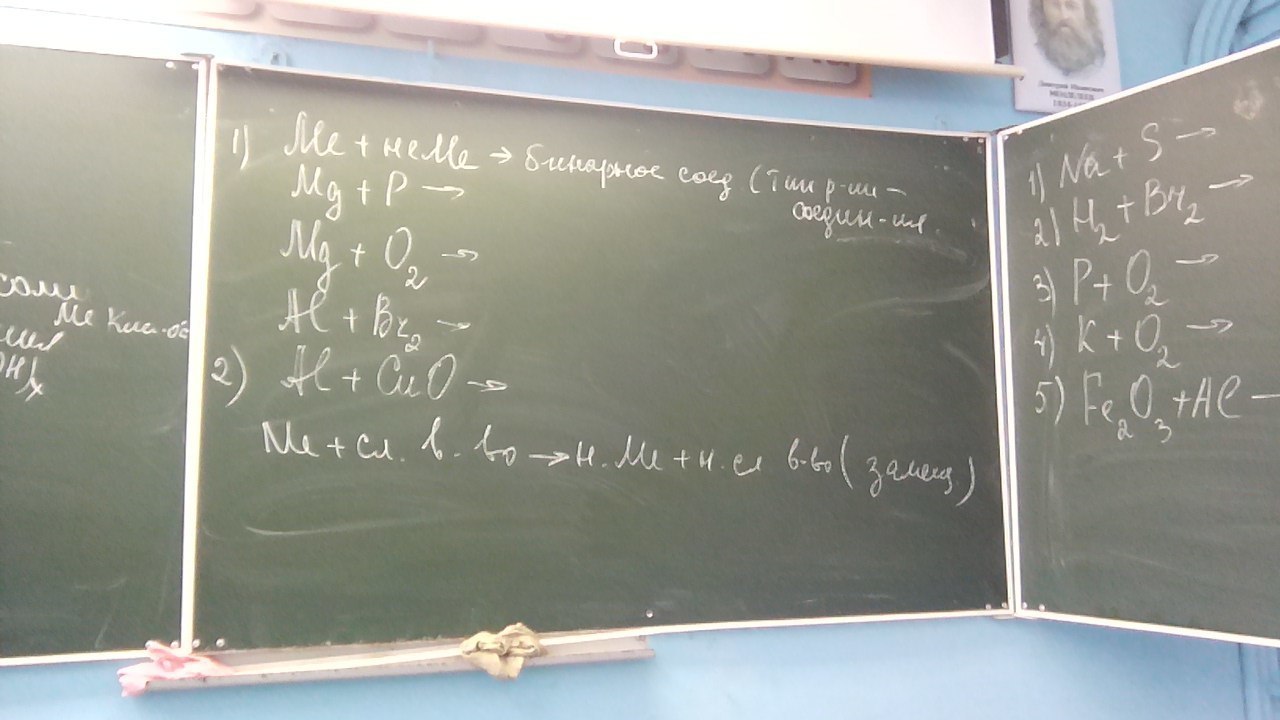 соли
Ме Кис-ос
1) Ме + неМе → бинарное соед (Тип р-ии -
соедин-ия.
Mg + P →
Mg + O2 →
Al + Br2 →
2) Al + CuO →
Ме + сл. в-во → н. Ме + н. сл в-во (замещ)
1) Na + S →
2) H2 + Br2 →
3) P + O2 →
4) K + O2 →
5) Fe2O3 + Al —
Дмитрий Иванович
МЕНДЕЛЕЕВ